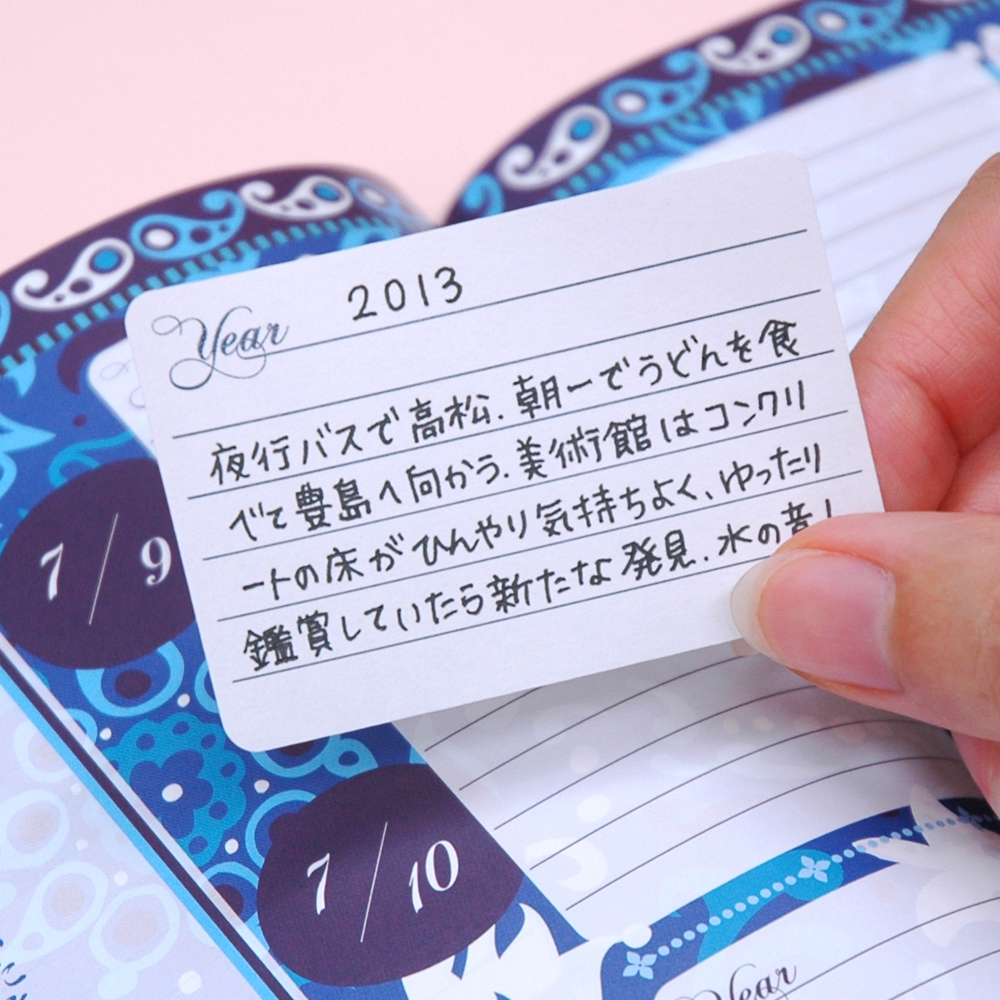 Year 2013
夜行バスで高松.朝一でうどんを食
べて豊島へ向かう.美術館はコンクリ
ートの床がひんやり気持ちよく、ゆったり
鑑賞していたら新たな発見.水の音!
7/9
7/10
Year